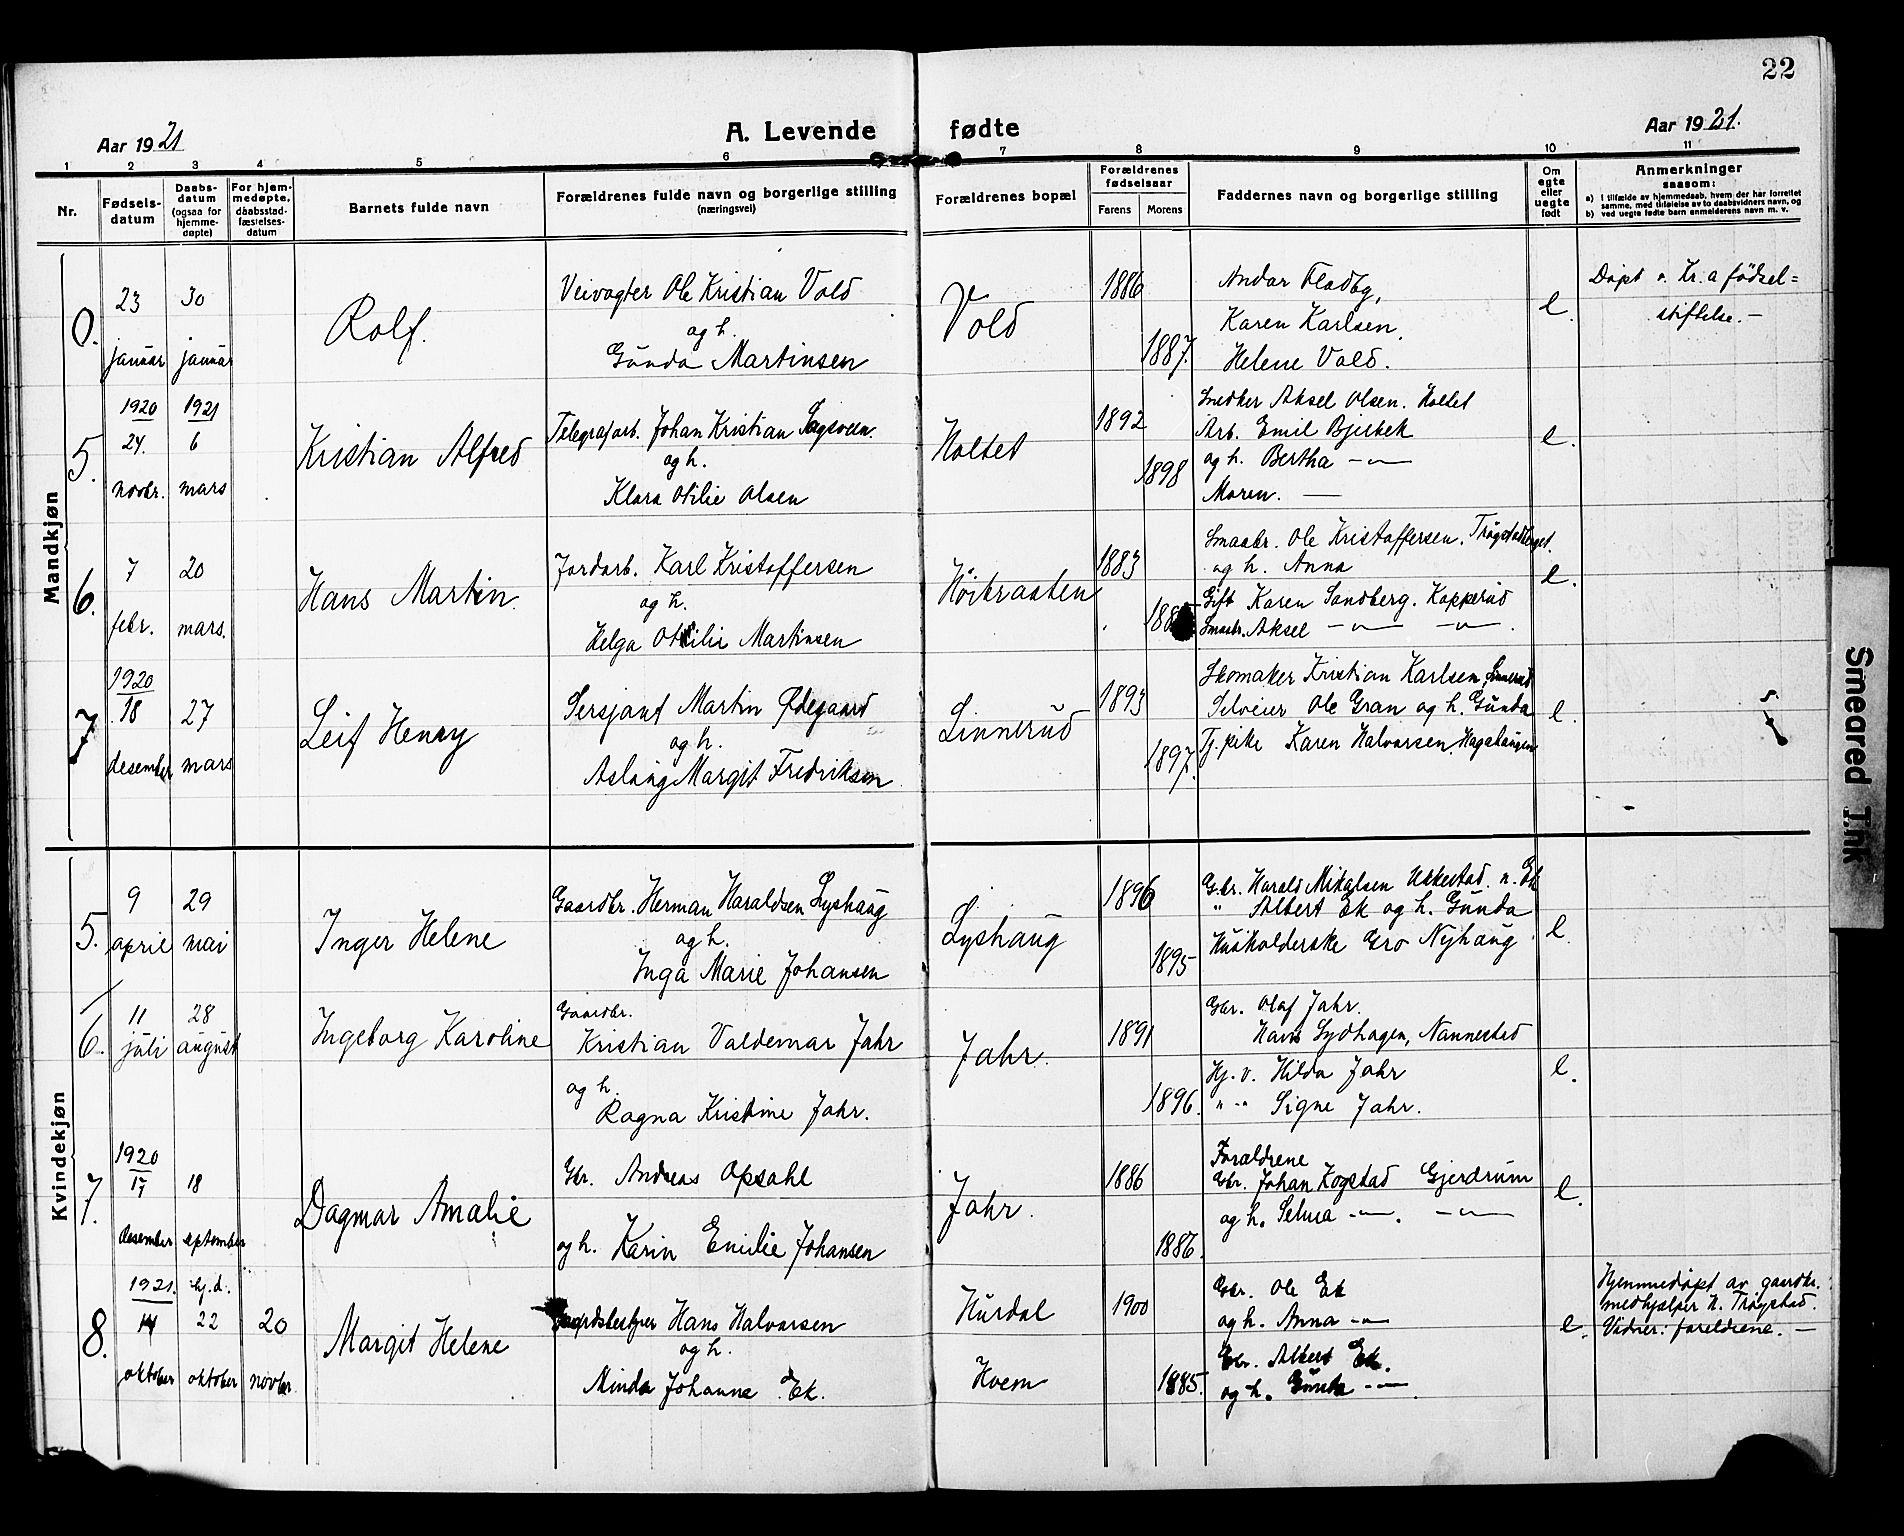 22
Aar 1921
A. Levende fødte
Aar 1921.
1 2 3 4 5 6 7 8 9 10 11
Nr.
Fødsels-
datum
Daabs-
datum
(ogsaa for
hjemme-
døpte)
For hjem-
medøpte,
daabsstad-
fæstelses-
datum
Barnets fulde navn
Forældrenes fulde navn og borgerlige stilling
(næringsvei)
Forældrenes bopæl
Forældrenes
fødselsaar
Farens
Morens
Faddernes navn og borgerlige stilling
Om
egte
eller
uegte
født
Anmerkninger
saasom:
a) I tilfælde av hjemmedaab, hvem der har forrettet
samme, med tilføielse av to daabsvidners navn, og
b) ved uegte fødte barn anmelderens navn m. v.
Mandkjøn
0.
23
januar
30
januar
Rolf.
Veivogter Ole Kristian Vold
og h.
Gunda Martinsen
Vold
1886
1887.
Andar Fladby,
Karen Karlsen,
Helene Vold.
e.
Døpt v. Kr.a fødsel=
stiftelse. —
5.
1920
24.
novbr.
1921
6
mars
Kristian Alfred
Telegrafarb. Johan Kristian Sagsveen.
og h.
Klara Otilie Olsen
Holtet
1892
1898
Snedker Aksel Olsen. Holtet
Arb. Emil Bjerbek
og h. Bertha —〃—
Moren. —
e.
6.
7
febr.
20
mars.
Hans Martin.
Jordarb. Karl Kristoffersen
og h.
Helga Otilie Martinsen
Høibraaten
1883
Smaabr. Ole Kristoffersen. Trøgstadberget.
og h. Anna
Gift Karen Sandberg. Kopperud
Smaabr. Aksel —〃— —〃—.
e.
7
1920
18
desember
27
mars
Leif Henry
Sersjant Martin Ødegaard
og h.
Aslaug Margit Fredriksen
Linnerud
1893
1897.
Skomaker Kristian Karlsen Linnerud
Selveier Ole Gran og h. Gunda
Tj. pike Karen Halvorsen. Hagahaugen
e.
Kvindekjøn
5.
9
april
29
mai
Inger Helene
Gaardbr. Herman Haraldsen Lyshaug
og h.
Inga Marie Johansen
Lyshaug
1896
1895
Gbr. Harald Mikalsen Ukkestad. n. Ek
〃 Albert Ek og h. Gunda
Husholderske Gro Nyhaug
e.
6.
11
juli
28
august
Ingeborg Karoline
Gaardbr.
Kristian Valdemar Jahr
og h.
Ragna Kristine Jahr.
Jahr.
1891
1896.
Gbr. Olaf Jahr.
Hans Sydhagen, Nannestad
Hj. v. Hilda Jahr
〃 -〃 Signe Jahr.
e.
7.
1920
17
desember
18
september
Dagmar Amalie
Gbr. Andreas Opsahl
og h. Karin Emilie Johansen
Jahr.
1886
1886.
Forældrene
Gbr. Johan Kogstad Gjerdrum
og h. Selma —〃—. —〃—
e.
8.
1921.
14
oktober
hj. d.
22
oktober
20
novbr.
Margit Helene
Gaardsbestyrer Hans Halvorsen
og h.
Minda Johanne Ek.
Hurdal
Hvem
1900
1885.
Gbr. Ole Ek
og h. Anna -〃-
Gbr. Albert Ek.
og h. Gunda -〃-
e.
Hjemmedøpt av gaardbr.
medhjælper H. Trøgstad.
Vidner: foreldrene. —
Smeared Ink